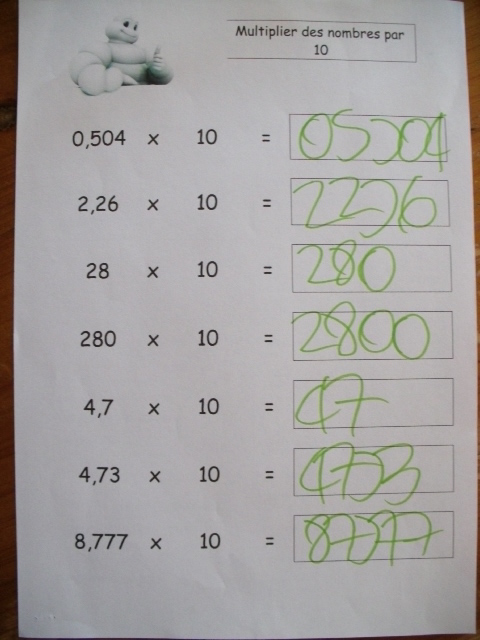 Multiplier des nombres par
10
0,504 x 10 = 05,04
2,26 x 10 = 22,6
28 x 10 = 280
280 x 10 = 2800
4,7 x 10 = 47
4,73 x 10 = 47,3
8,777 x 10 = 87,77